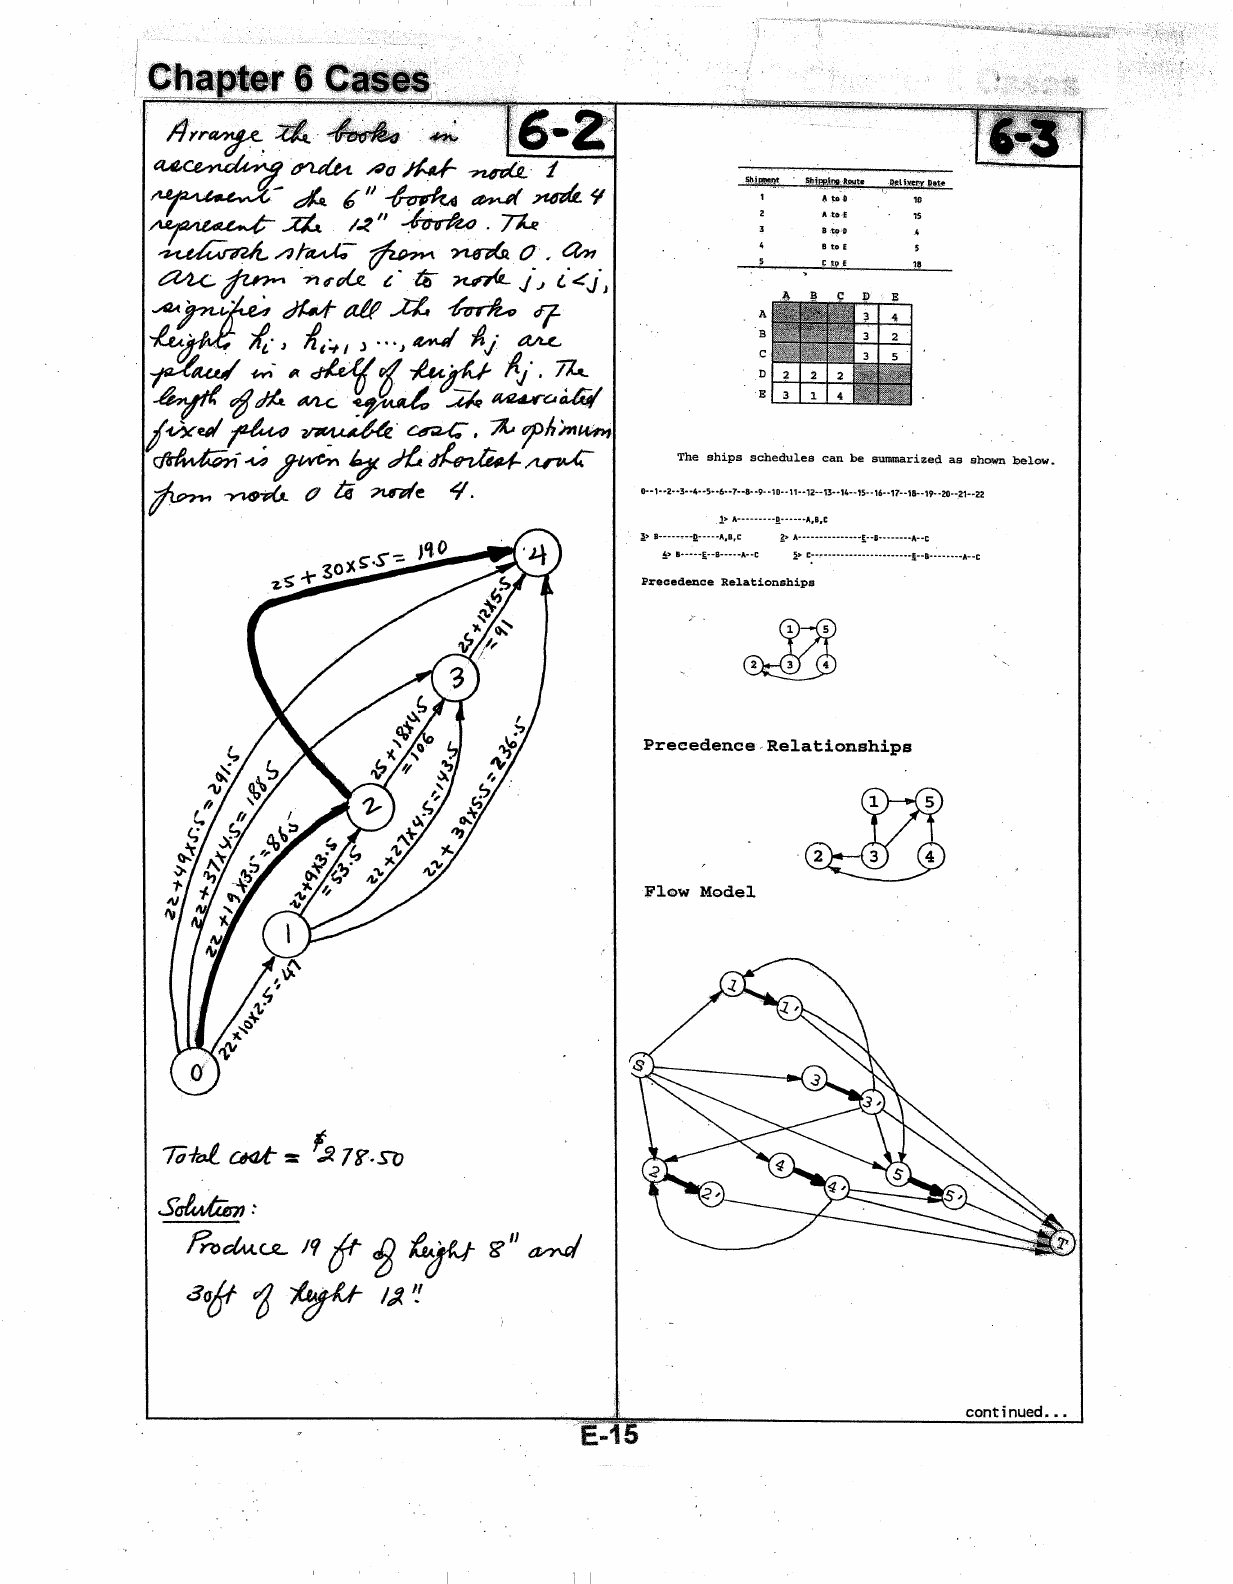 Chapter 6 Cases
6-2
Arrange the books in
ascending order so that node 1
represent the 6" books and node 4
represent the 12" books. The
network starts from node 0. An
arc from node i to node j, i<j,
signifies that all the books of
heights hi, hi+1, ..., and hj are
placed in a shelf of height hj. The
length of the arc equals the associated
fixed plus variable costs. The optimum
solution is given by the shortest route
from node 0 to node 4.
25+30x5.5=190
4
25+12x5.5
=91
3
25+18x4.5
=106
2
22+49x5.5=291.5
22+37x4.5=188.5
22+19x3.5=86.5
22+9x3.5
=53.5
22+27x4.5=143.5
22+39x5.5=236.5
1
22+10x2.5=47
0
Total cost = $278.50
Solution:
Produce 19 ft of height 8" and
30ft of height 12".
6-3
Shipment Shipping Route Delivery Date
1 A to D 10
2 A to E 15
3 B to D 4
4 B to E 5
5 C to E 18
A B C D E
A 3 4
B 3 2
C 3 5
D 2 2 2
E 3 1 4
The ships schedules can be summarized as shown below.
0--1--2--3--4--5--6--7--8--9--10--11--12--13--14--15--16--17--18--19--20--21--22
1> A---------D------A,B,C
3> B--------D-----A,B,C 2> A----------------E--B--------A--C
4> B-----E--B-----A--C 5> C-------------------------E--B--------A--C
Precedence Relationships
1 5
2 3 4
Precedence Relationships
1 5
2 3 4
Flow Model
1
1'
S
3
3'
2
4
5
2'
4'
5'
T
continued...
E-15